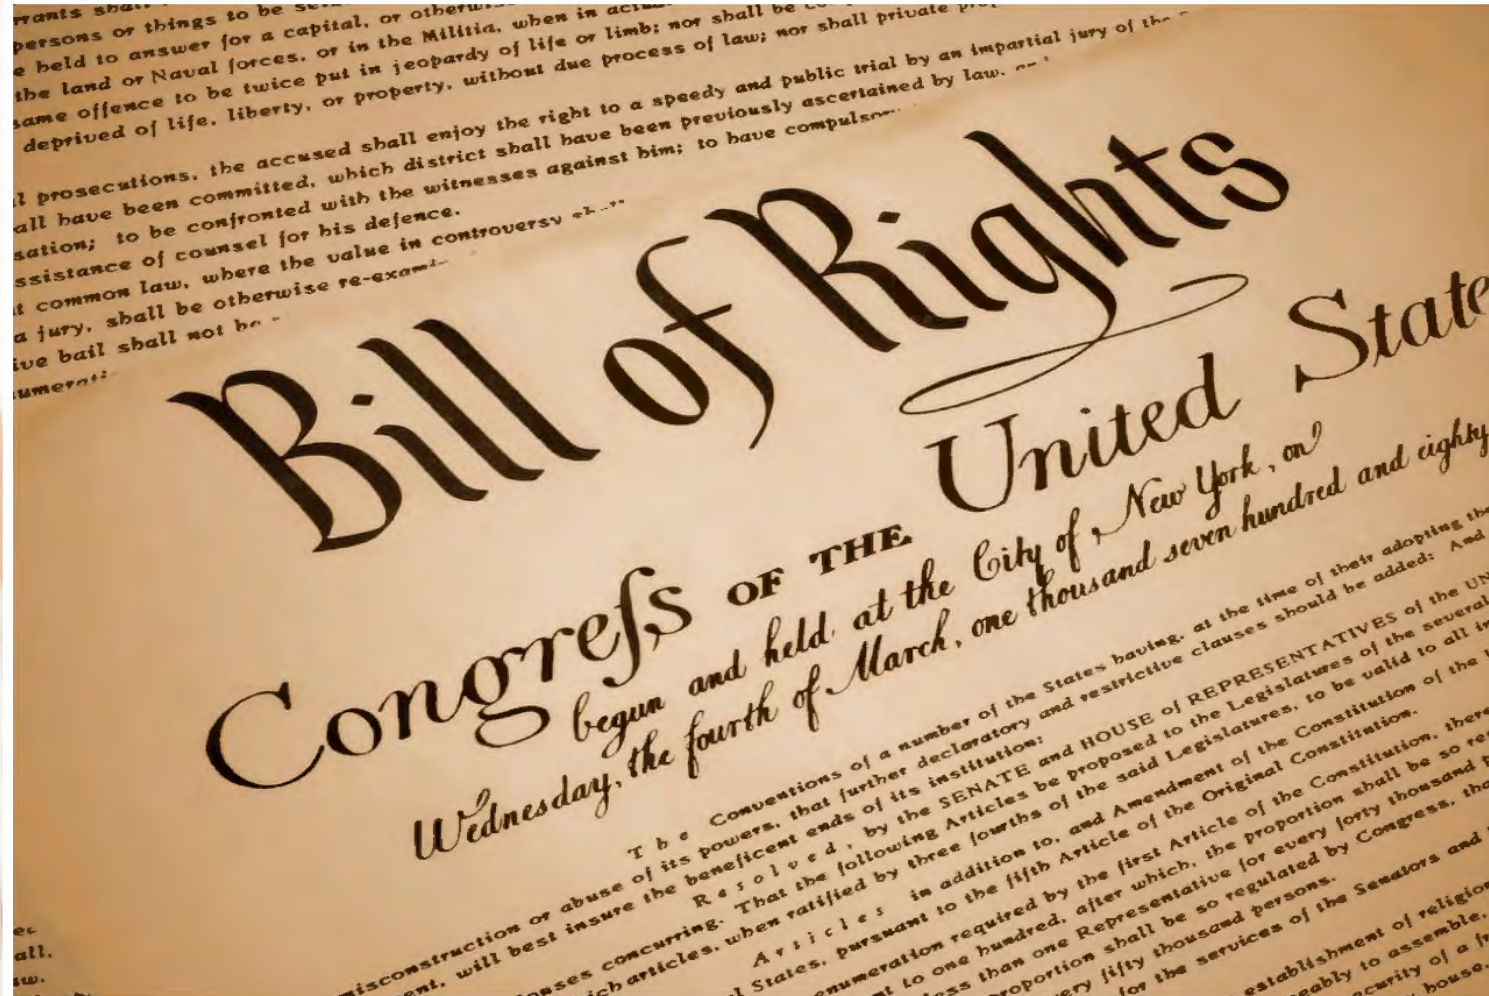 rrants shall
persons or things to be
e held to answer for a capital, or
the land or Naval forces, or in the Militia, when in
same offence to be twice put in jeopardy of life or limb; nor shall be
deprived of life, liberty, or property, without due process of law; nor shall private
l prosecutions, the accused shall enjoy the right to a speedy and public trial by an impartial jury of the
all have been committed, which district shall have been previously ascertained by law,
sation; to be confronted with the witnesses against him; to have
ssistance of counsel for his defence.
t common law, where the value in controversy
a jury, shall be otherwise
ive bail shall not be
Bill of Rights
Congreſs OF THE United State
begun and held at the City of New York, on
Wednesday, the fourth of March, one thousand seven hundred and eighty
The Conventions of a number of the States having, at the time of their adopting the
misconstruction or abuse of its powers, that further declaratory and restrictive clauses should be added: And
ent, will best insure the beneficent ends of its institution:
Resolved, by the SENATE and HOUSE of REPRESENTATIVES of the UN
onses concurring. That the following Articles be proposed to the Legislatures of the several
ich articles, when ratified by three fourths of the said Legislatures, to be valid to all in
Articles in addition to, and Amendment of the Constitution of the
l States, pursuant to the fifth Article of the Original Constitution.
enumeration required by the first Article of the Constitution, there
nt to one hundred, after which, the proportion shall be so re
less than one Representative for every forty thousand p
roportion shall be so regulated by Congress, tha
very fifty thousand persons.
for the services of the Senators and
establishment of religion
eably to assemble,
ecurity of a
house,
all,